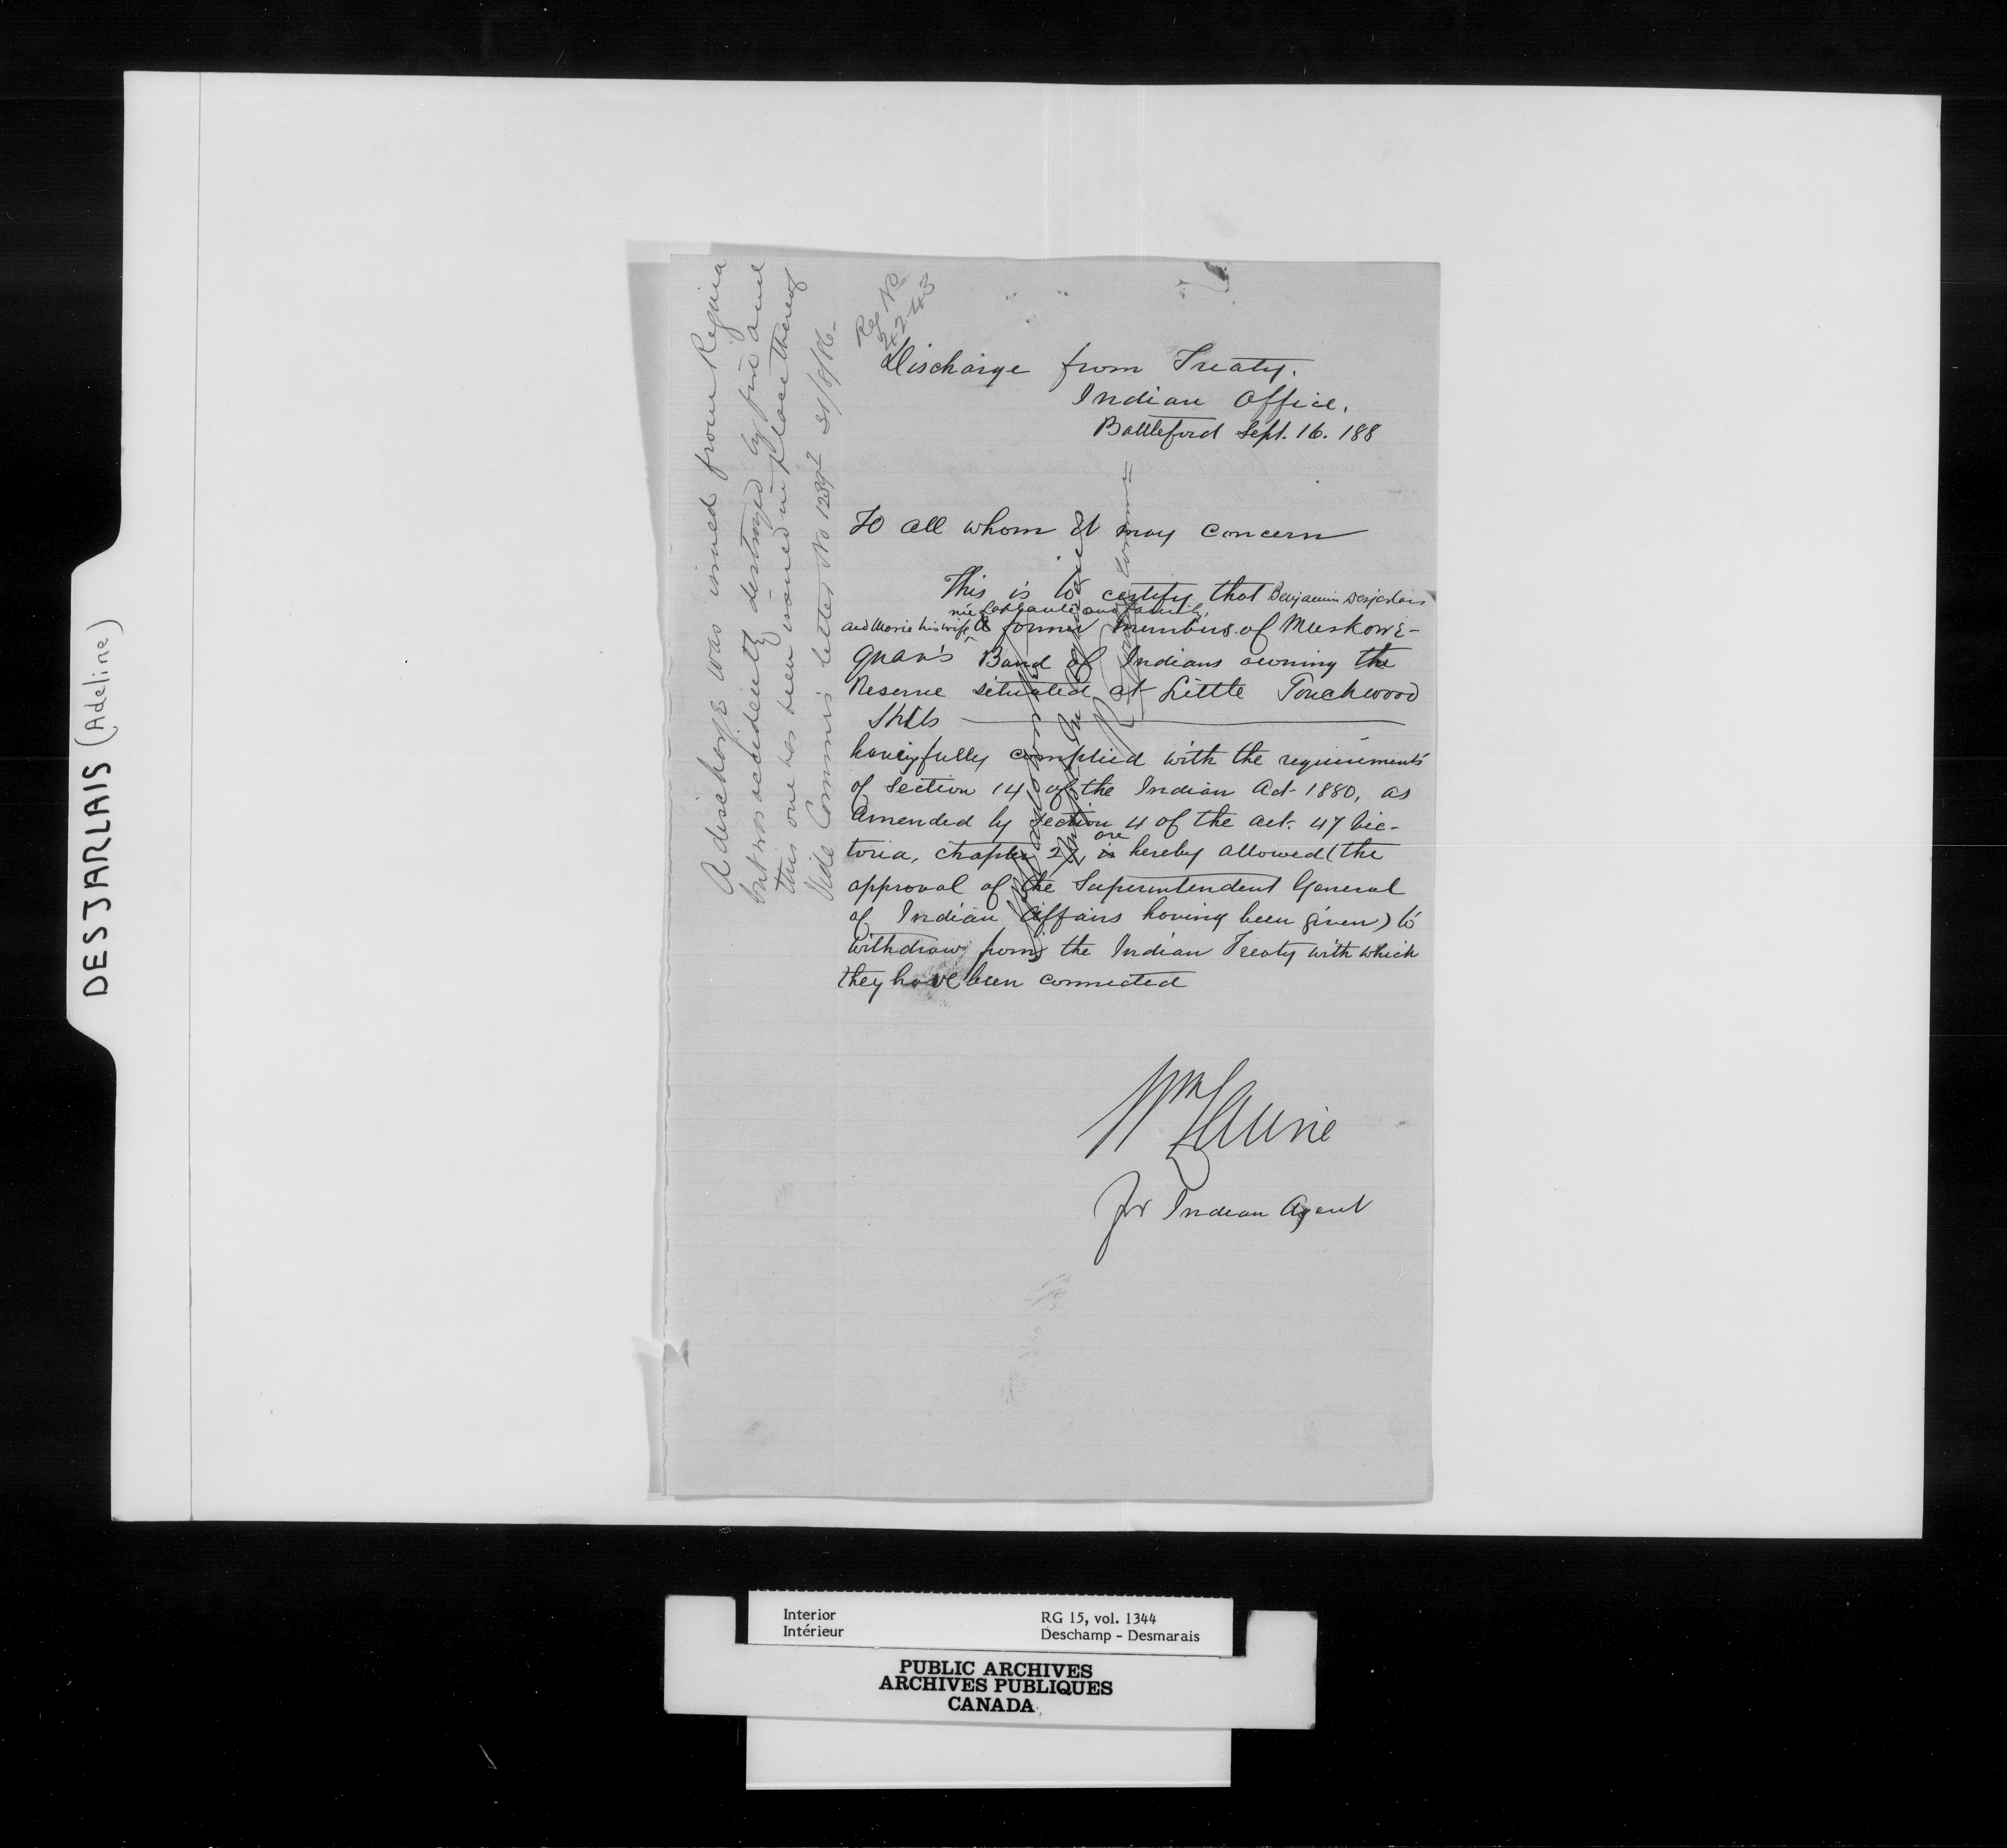 DESJARLAIS (Adeline)
A discharge was issued from Regina
but was accidently destroyed by fire and
this one has been issued in place thereof
Vide Commrs letter No 1239 31/8/86-
Reg No
Discharge from Treaty.
Indian Office.
Battleford Sept. 16. 188
To all whom it may concern
This is to certify that Benjamin Desjarlais
née and family
and Marie his wife former members of Muskowe-
quan's Band of Indians owning the
Reserve situated at Little Touchwood
Hills
having fully complied with the requirements
of Section 14 of the Indian Act 1880, as
amended by Section 4 of the Act. 47 Vic-
are
toria, chapter 27, is hereby allowed (the
approval of the Superintendent General
of Indian Affairs having been given) to
withdraw from the Indian Treaty with which
they have been connected
Wm Laurie
for Indian Agent
Interior RG 15, vol. 1344
Intérieur Deschamp - Desmarais
PUBLIC ARCHIVES
ARCHIVES PUBLIQUES
CANADA